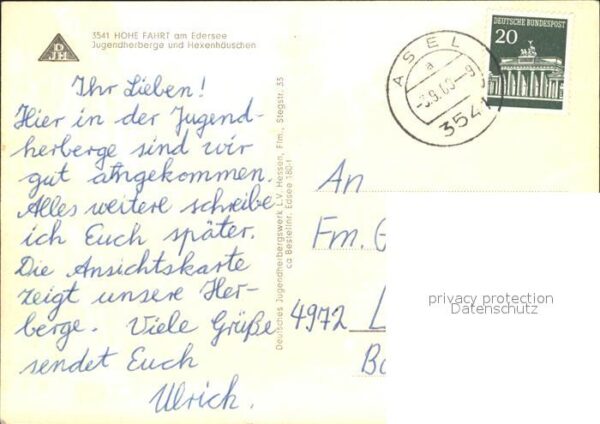 3541 HOHE FAHRT am Edersee
Jugendherberge und Hexenhäuschen
DJH
Ihr Lieben!
Hier in der Jugend-
herberge sind wir
gut angekommen.
Alles weitere schreibe
ich Euch später.
Die Ansichtskarte
zeigt unsere Her-
berge. Viele Grüße
sendet Euch
Ulrich.
Deutsches Jugendherbergswerk L.V. Hessen, Ffm., Stegstr. 33
ca Bestellnr. Edsee 180-1
ASEL
a
3541
DEUTSCHE BUNDESPOST
20
An
Fm. G
4972 L
privacy protection
Datenschutz